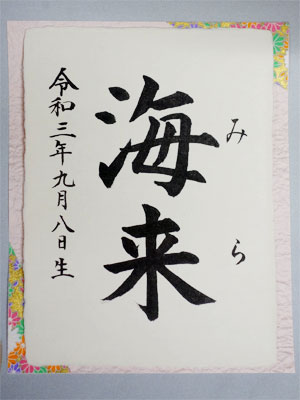 みら
海来
令和三年九月八日生